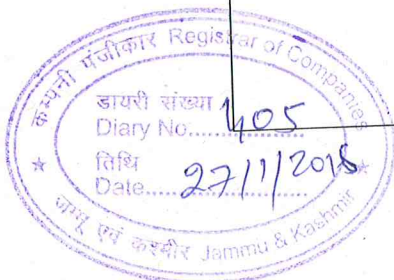 कम्पनी पंजीकार Registrar of Companies
डायरी संख्या
Diary No..... 405
तिथि
Date..... 27/11/2015
जम्मू एवं कश्मीर Jammu & Kashmir